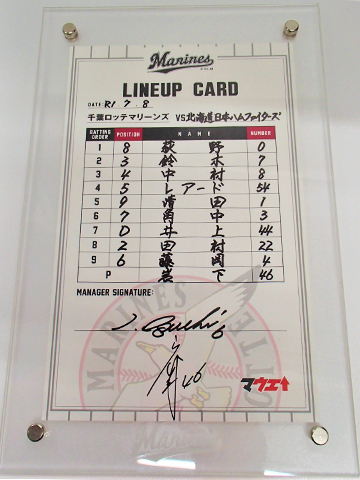 Marines
LINEUP CARD
DATE: R1 7.8
千葉ロッテマリーンズ VS 北海道日本ハムファイターズ
BATTING ORDER POSITION NAME NUMBER
1 8 荻野 0
2 3 鈴木 7
3 4 中村 8
4 5 レアード 54
5 9 清田 1
6 7 角中 3
7 D 井上 44
8 2 田村 22
9 6 藤岡 4
P 岩下 46
MANAGER SIGNATURE:
46
マウエ↑
MARINES
Marines